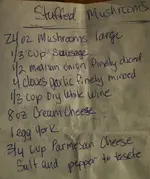 Stuffed Mushrooms
24 oz Mushrooms large
1/3 cup Sausage
1/2 medium onion Finely diced
4 cloves Garlic Finely minced
1/3 cup Dry White Wine
8 oz Cream Cheese
1 egg York
3/4 cup Parmesan Cheese
Salt and pepper to tasete